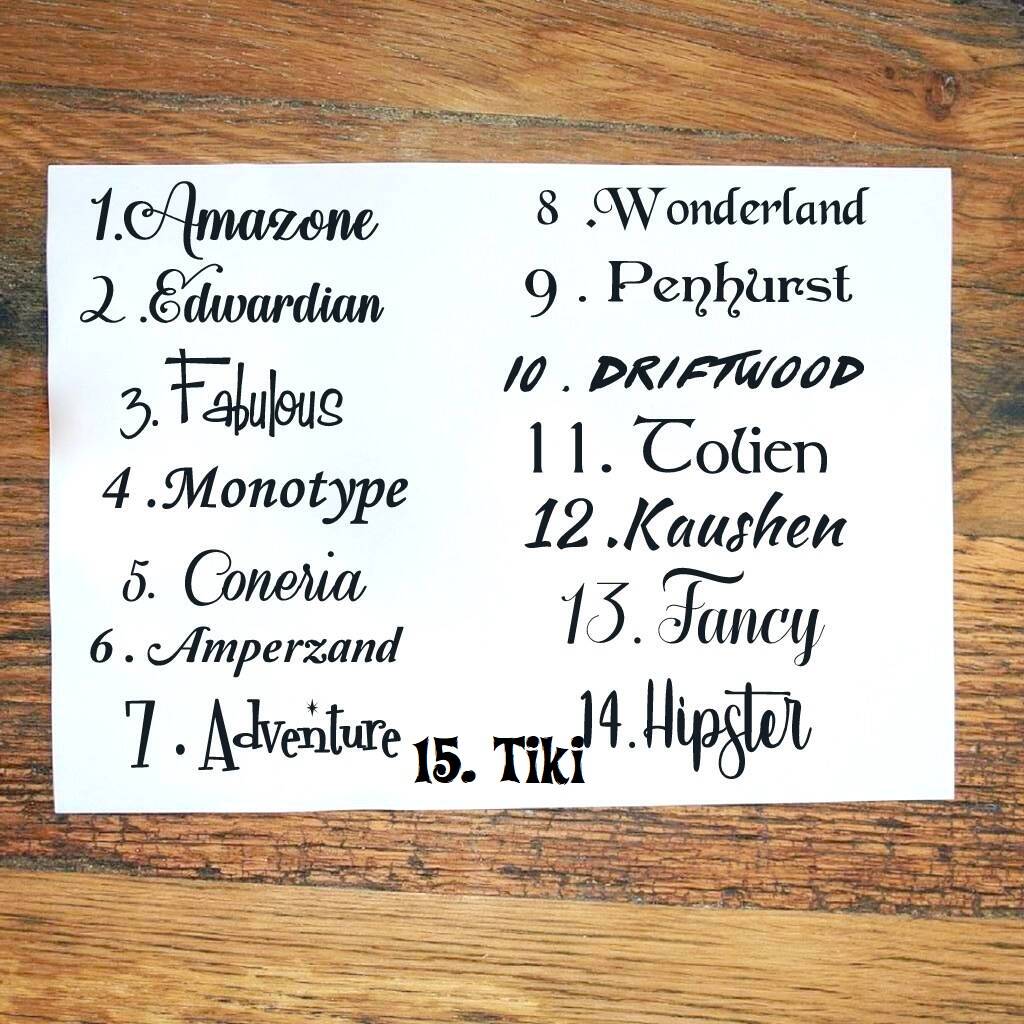 1.Amazone
2 .Edwardian
3. Fabulous
4 .Monotype
5. Coneria
6 . Amperzand
7 . Adventure
8 .Wonderland
9 . Penhurst
10 . DRIFTWOOD
11. Tolien
12 .Kaushen
13. Fancy
14.Hipster
15. Tiki